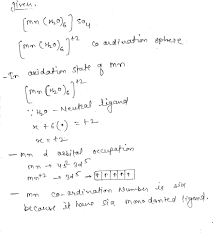 given.
[mn (H₂O)₆] SO₄
[mn (H₂O)₆]⁺² co ordination sphere
- In oxidation state of mn
[mn (H₂O)₆]⁺²
∵ H₂O - Neutral ligand
x + 6(0) = +2
x = +2
- mn d orbital occupation
mn → 4s² 3d⁵
mn⁺² → 3d⁵ → ↑ ↑ ↑ ↑ ↑
- mn co-ordination Number is six
because it have six mono donted ligand.